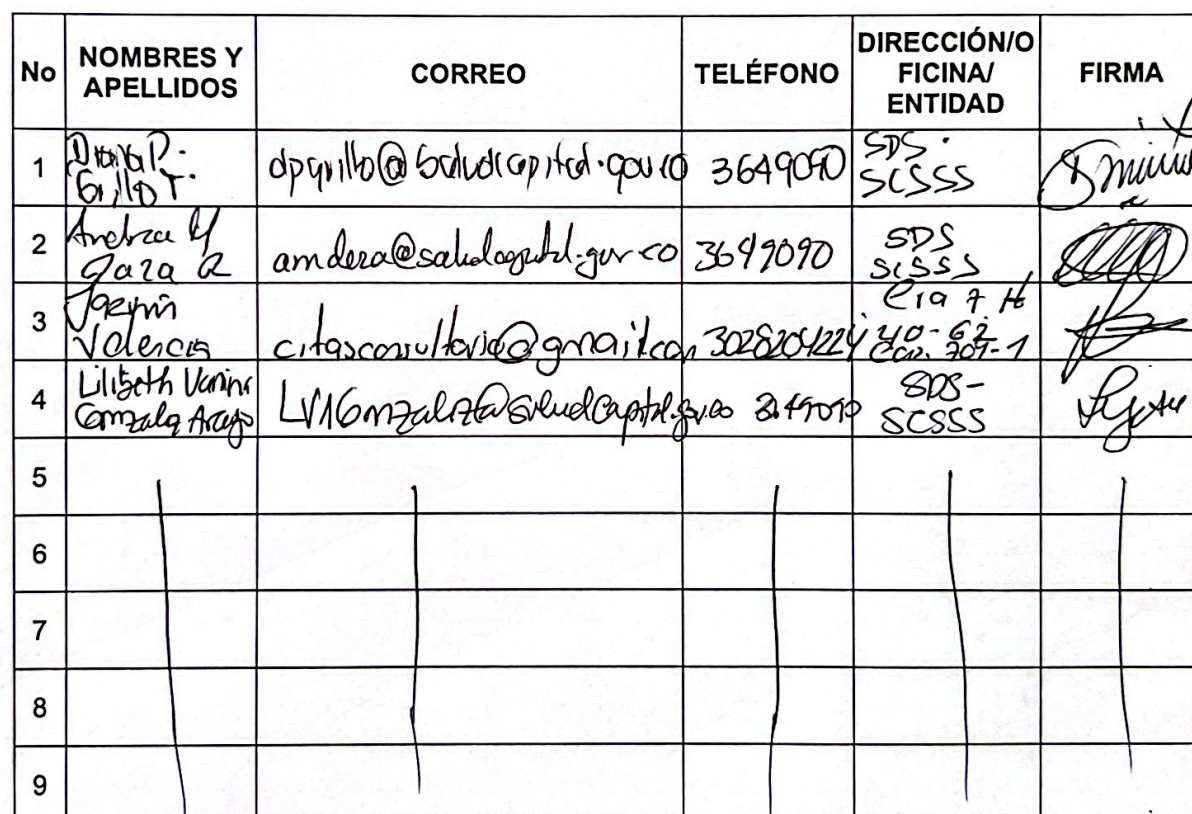 No NOMBRES Y APELLIDOS CORREO TELÉFONO DIRECCIÓN/O FICINA/ ENTIDAD FIRMA
1 Diana P. Grillo T. dpgrillo@saludcapital.gov.co 3649090 SDS. SCSSS
2 Andrea M @saludcapital.gov.co 3649090 SDS SCSSS
3 Jazmin Valencia citasconsultorio@gmail.com 3028204224 Cra 7 # 40-62
4 Lilibeth Vanina Gonzalez Araujo LV1Gonzalez@saludcapital.gov.co 3649090 SDS- SCSSS
5
6
7
8
9